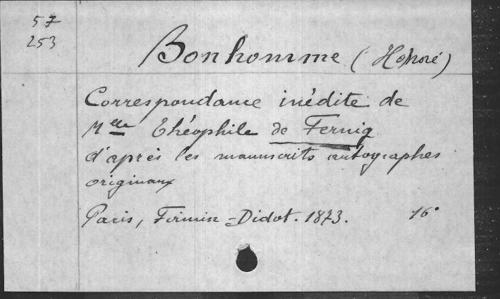 57
253
Bonhomme (Honoré)
Correspondance inédite de
Mlle Théophile de Fernig
d'après les manuscrits autographes
originaux
Paris, Firmin-Didot. 1873. 16°